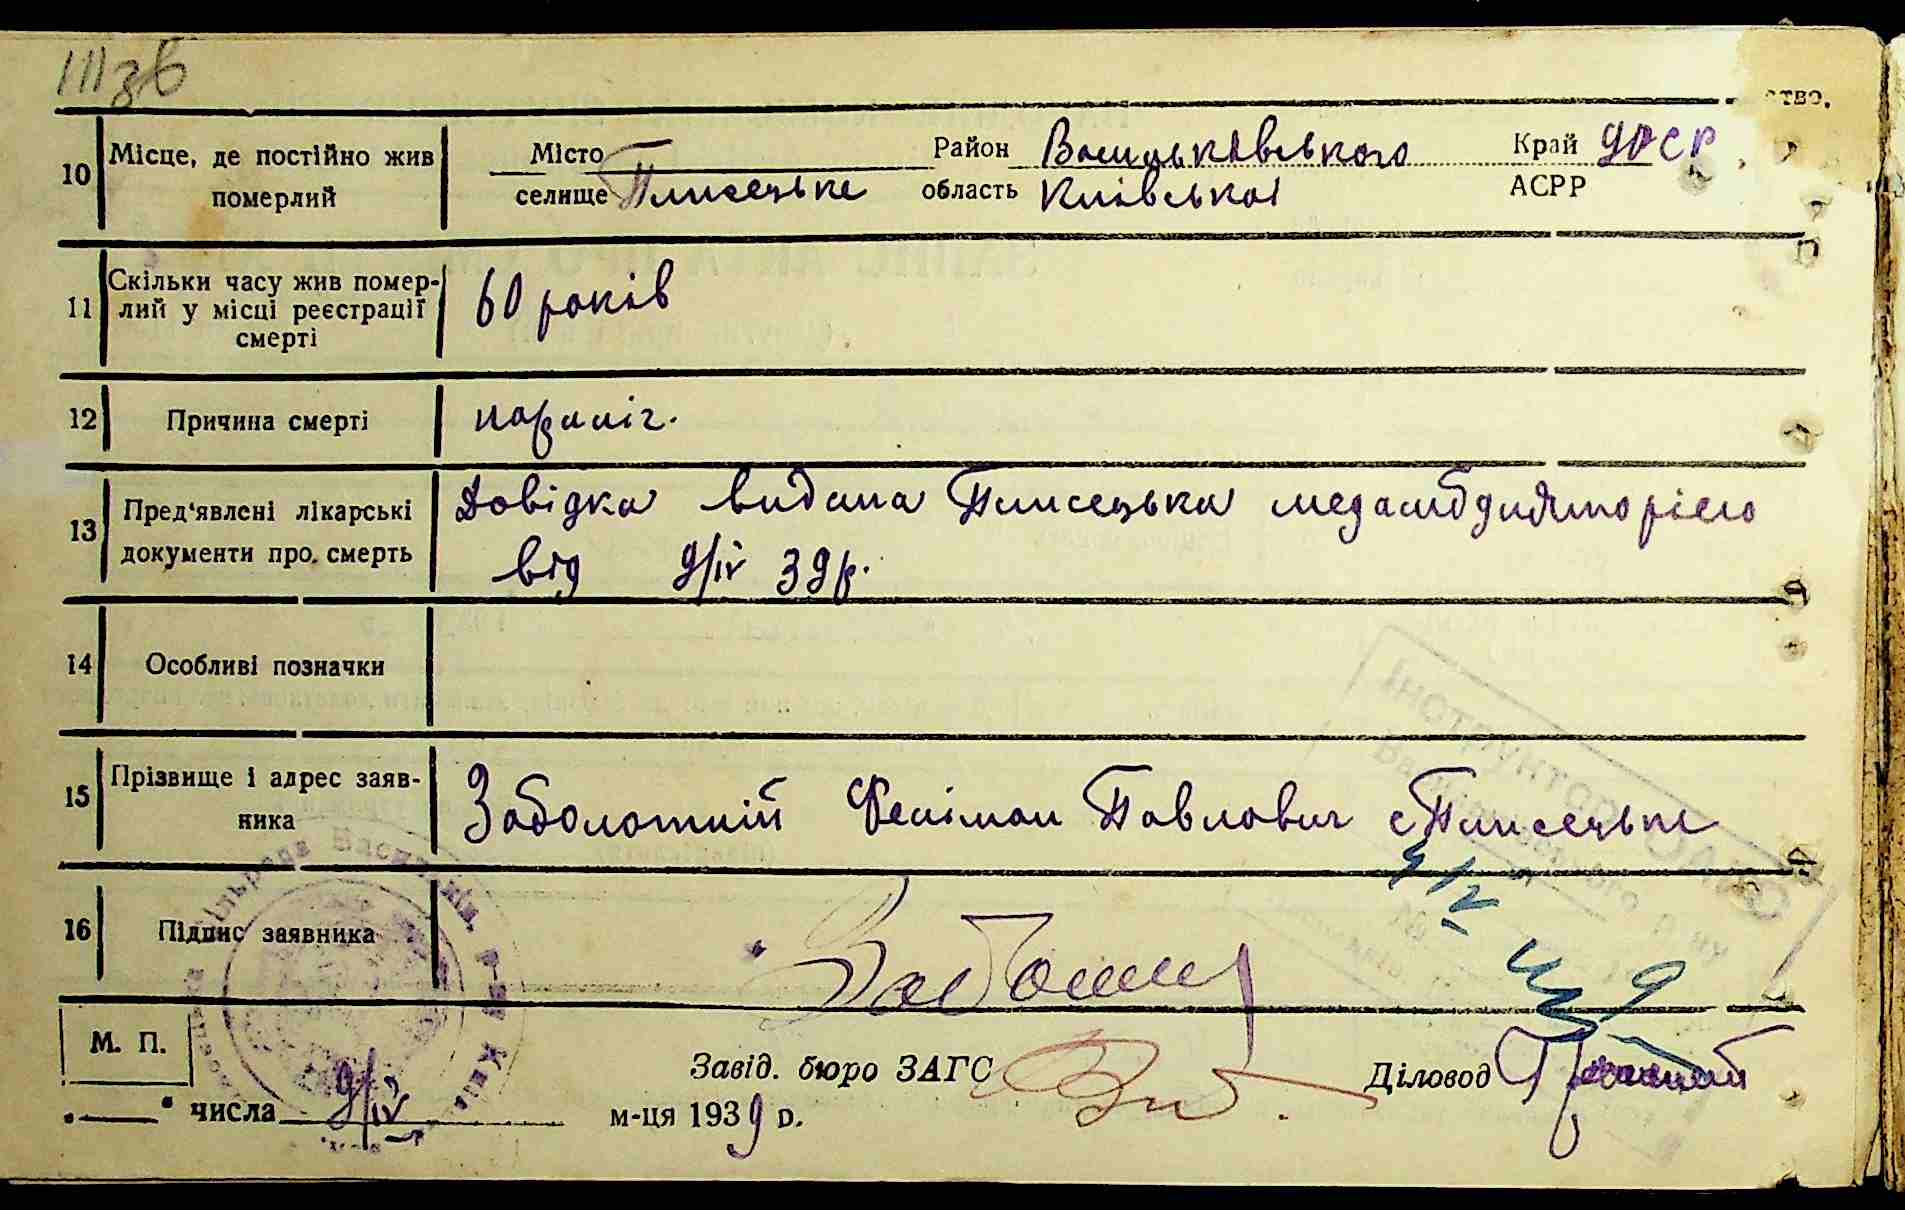 ІІІ зв
ство.
10 Місце, де постійно жив померлий
Місто
селище Плисецьке
Район Васильківського
область Київської
Край УРСР
АСРР
11 Скільки часу жив помер-
лий у місці реєстрації
смерті
60 років
12 Причина смерті
параліч.
13 Пред'явлені лікарські
документи про. смерть
Довідка видана Плисецька медамбулаторією
від 9/IV 39 р.
14 Особливі позначки
15 Прізвище і адрес заяв-
ника
Заболотний Павлович с Плисецьке
16 Підпис заявника
М. П.
Завід. бюро ЗАГС
Діловод
" числа 9/IV м-ця 1939 р.